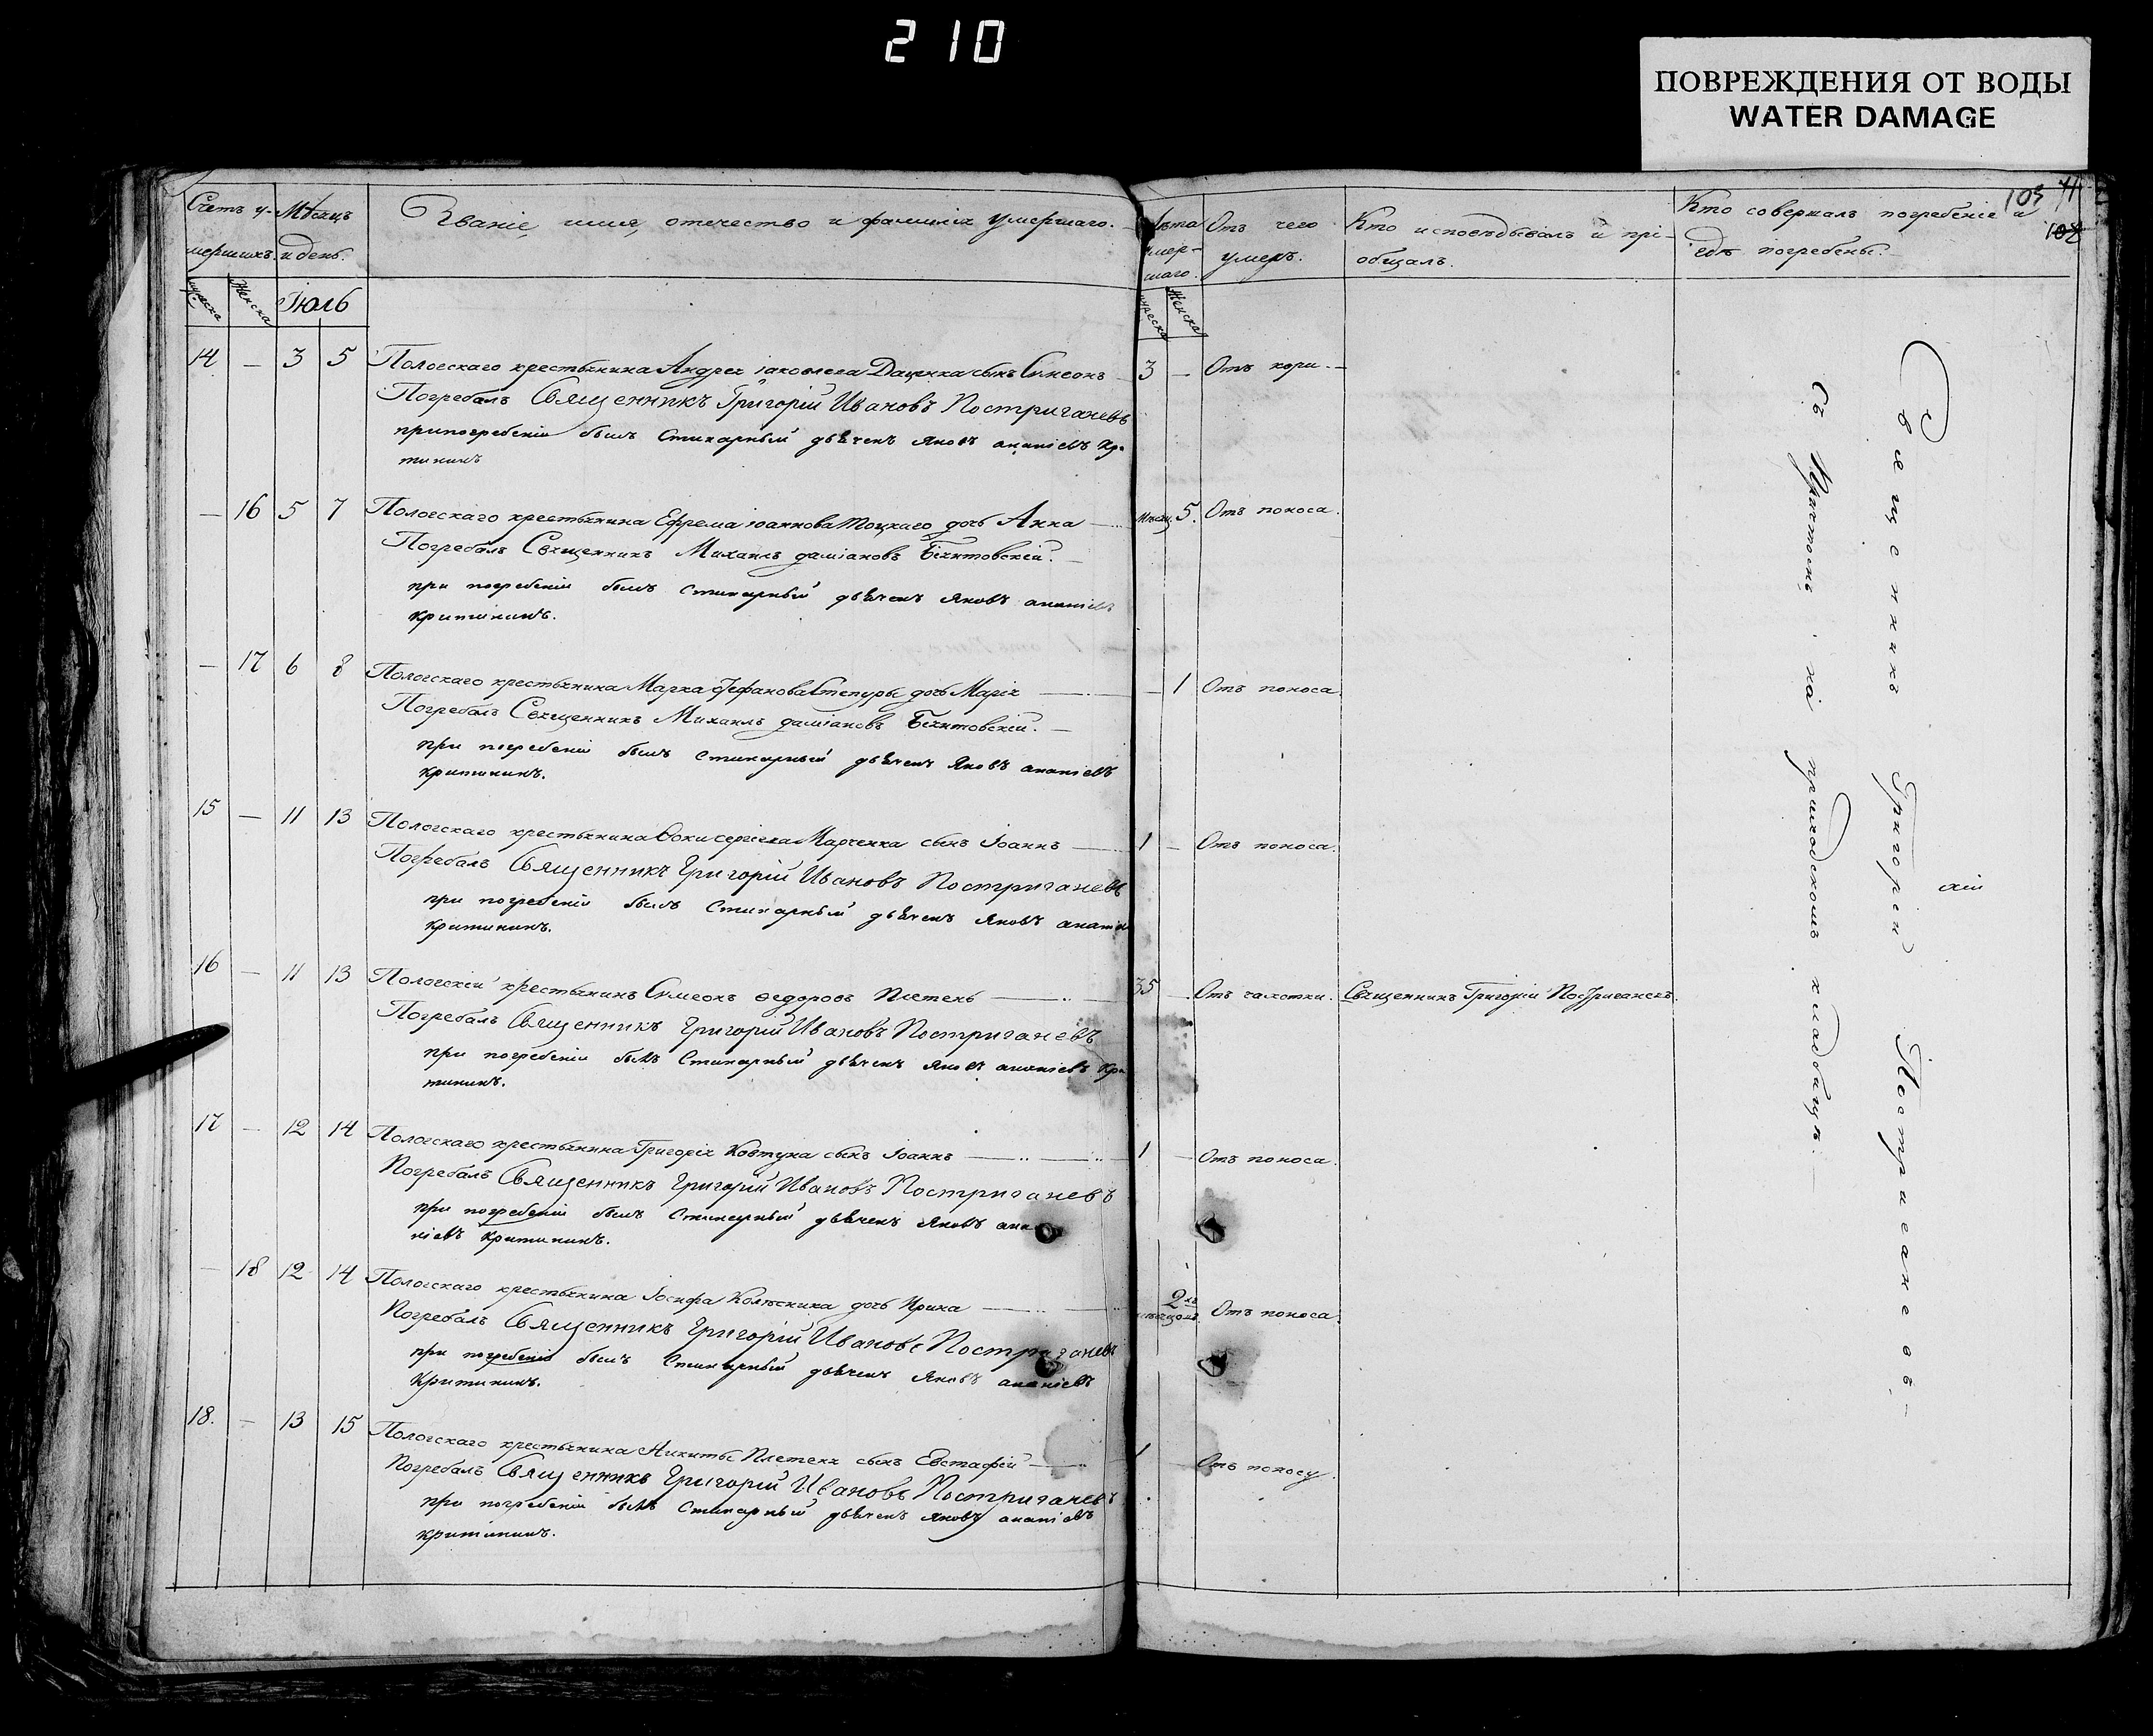 210
ПОВРЕЖДЕНИЯ ОТ ВОДЫ
WATER DAMAGE
Счетъ у- Мѣсяцъ
мершихъ. и день.
Званіе, имя, отечество и фамилія умершаго.
Лѣта
умер-
шаго.
Отъ чего
умеръ.
Кто исповѣдывалъ и прі-
общалъ.
Кто совершалъ погребеніе и
гдѣ погребены.
103
102
Мужска Женска Іюль
Мужска Женска
14 — 3 5 Пологскаго крестьянина Андрея іаковлева Даценка сынъ Симеонъ 3 — Отъ кори.
Погребалъ Священникъ Григорій Ивановъ Постриганевъ
припогребеніи былъ Стихарный дьячекъ Яковъ ананіевъ Кри
тининъ
— 16 5 7 Пологскаго крестьянина Ефрема іоаннова Тоцкаго дочь Анна — Мѣсяц. 5. Отъ поноса.
Погребалъ Священникъ Михаилъ даміановъ
при погребеніи былъ Стихарный дьячекъ Яковъ ананіевъ
критининъ.
— 17 6 8 Пологскаго крестьянина Марка Стефанова дочь Марія — — 1 Отъ поноса.
Погребалъ Священникъ Михаилъ даміановъ
при погребеніи былъ Стихарный дьячекъ Яковъ ананіевъ
критининъ.
15 — 11 13 Пологскаго крестьянина Фоки сергіева Марченка сынъ Іоаннъ — 1 — Отъ поноса.
Погребалъ Священникъ Григорій Ивановъ Постриганевъ
при погребеніи былъ Стихарный дьячекъ Яковъ ананіев
критининъ.
16 — 11 13 Пологскій крестьянинъ Симеонъ Ѳедоровъ Плетень — 35 — Отъ чахотки. Священникъ Григорій Постриганевъ.
Погребалъ Священникъ Григорій Ивановъ Постриганевъ
при погребеніи былъ Стихарный дьячекъ Яковъ ананіевъ Кри
тининъ.
17 — 12 14 Пологскаго крестьянина Григорія Ковтуна сынъ Іоаннъ — 1 — Отъ поноса.
Погребалъ Священникъ Григорій Ивановъ Постриганевъ
при погребеніи былъ Стихарный дьячекъ Яковъ ана
ніевъ критининъ.
— 18 12 14 Пологскаго крестьянина Іосифа Колѣсника дочь Ирина — 2хъ мѣсяцовъ Отъ поноса.
Погребалъ Священникъ Григорій Ивановъ Постриганевъ
при погребеніи былъ Стихарный дьячекъ Яковъ ананіевъ
Критининъ.
18. — 13 15 Пологскаго крестьянина Никиты Плетеня сынъ Евстафій — 1 — Отъ поносу.
Погребалъ Священникъ Григорій Ивановъ Постриганевъ
при погребеніи былъ Стихарный дьячекъ Яковъ ананіевъ
критининъ.
Священникъ Григорій Постриганевъ
Съ Причтомъ на приходскомъ кладбищѣ.